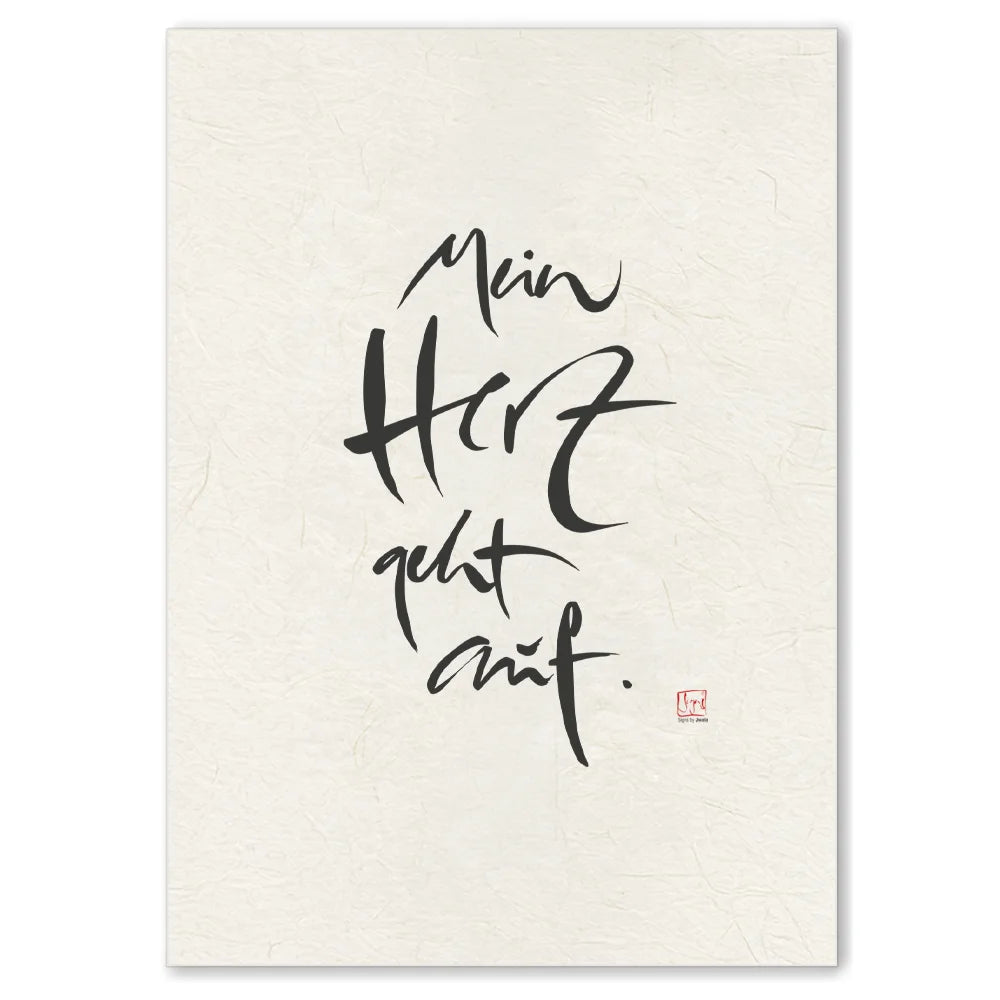 Mein
Herz
geht
auf.
Signs by Jwala